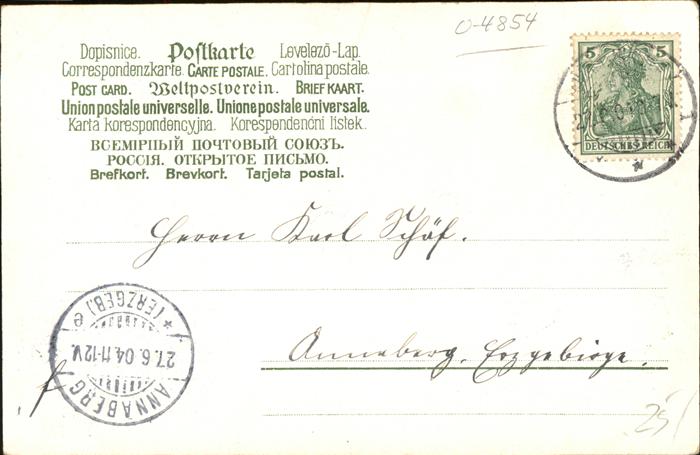 0-4854
Dopisnice. Postkarte Levelező-Lap.
Correspondenzkarte. CARTE POSTALE. Cartolina postale.
POST CARD. Weltpostverein. BRIEFKAART.
Union postale universelle. Unione postale universale.
Karta korespondencyjna. Korespondenční lístek.
ВСЕМІРНЫЙ ПОЧТОВЫЙ СОЮЗЪ.
РОССІЯ. ОТКРЫТОЕ ПИСЬМО.
Brefkort. Brevkort. Tarjeta postal.
5 5
DEUTSCHES REICH
Herrn Karl Schäf.
Annaberg. Erzgebirge.
ANNABERG
27.6.04.11-12V.
* (ERZGEB.) e
25